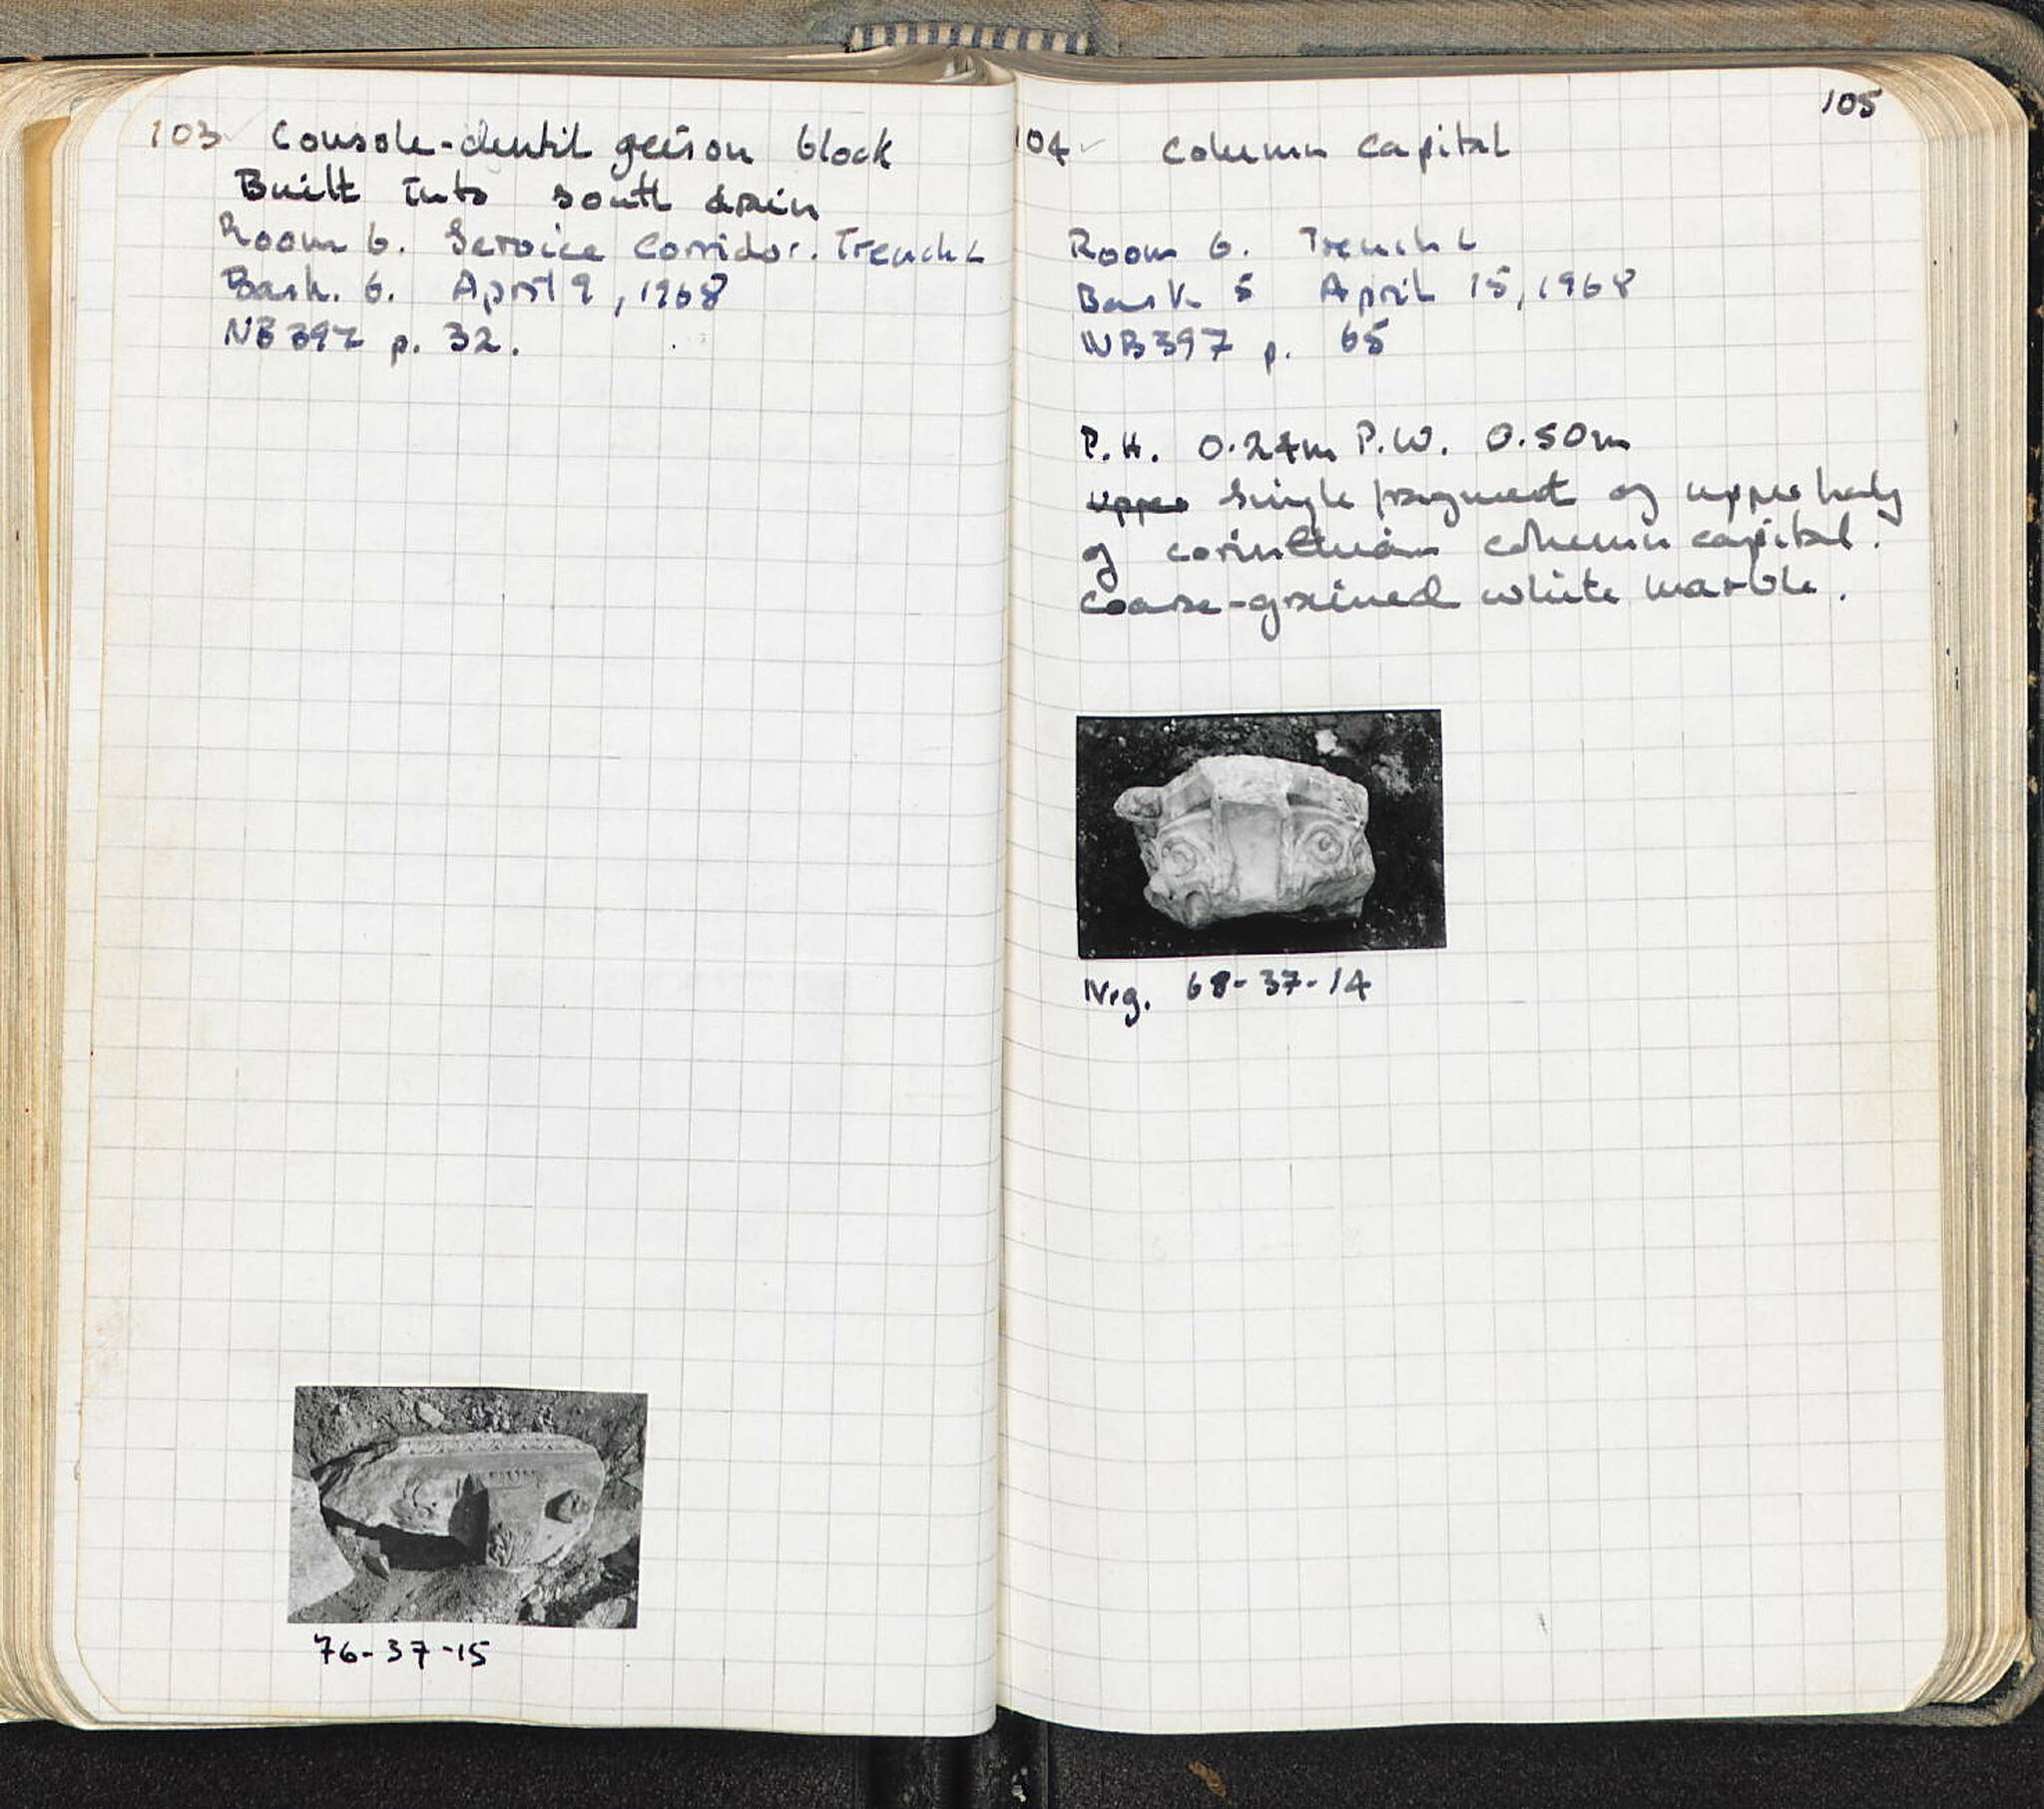 103 Console-dentil geison block
Built into south drain
Room 6. Service Corridor. Trench L
Bask. 6. April 9, 1968
NB 397 p. 32.
76-37-15
105
104 Column capital
Room 6. Trench L
Bask 5 April 15, 1968
NB 397 p. 65
P.H. 0.24m P.W. 0.50m
upper Single fragment of upper half
of corinthian column capital.
Coarse-grained white marble.
Neg. 68-37-14